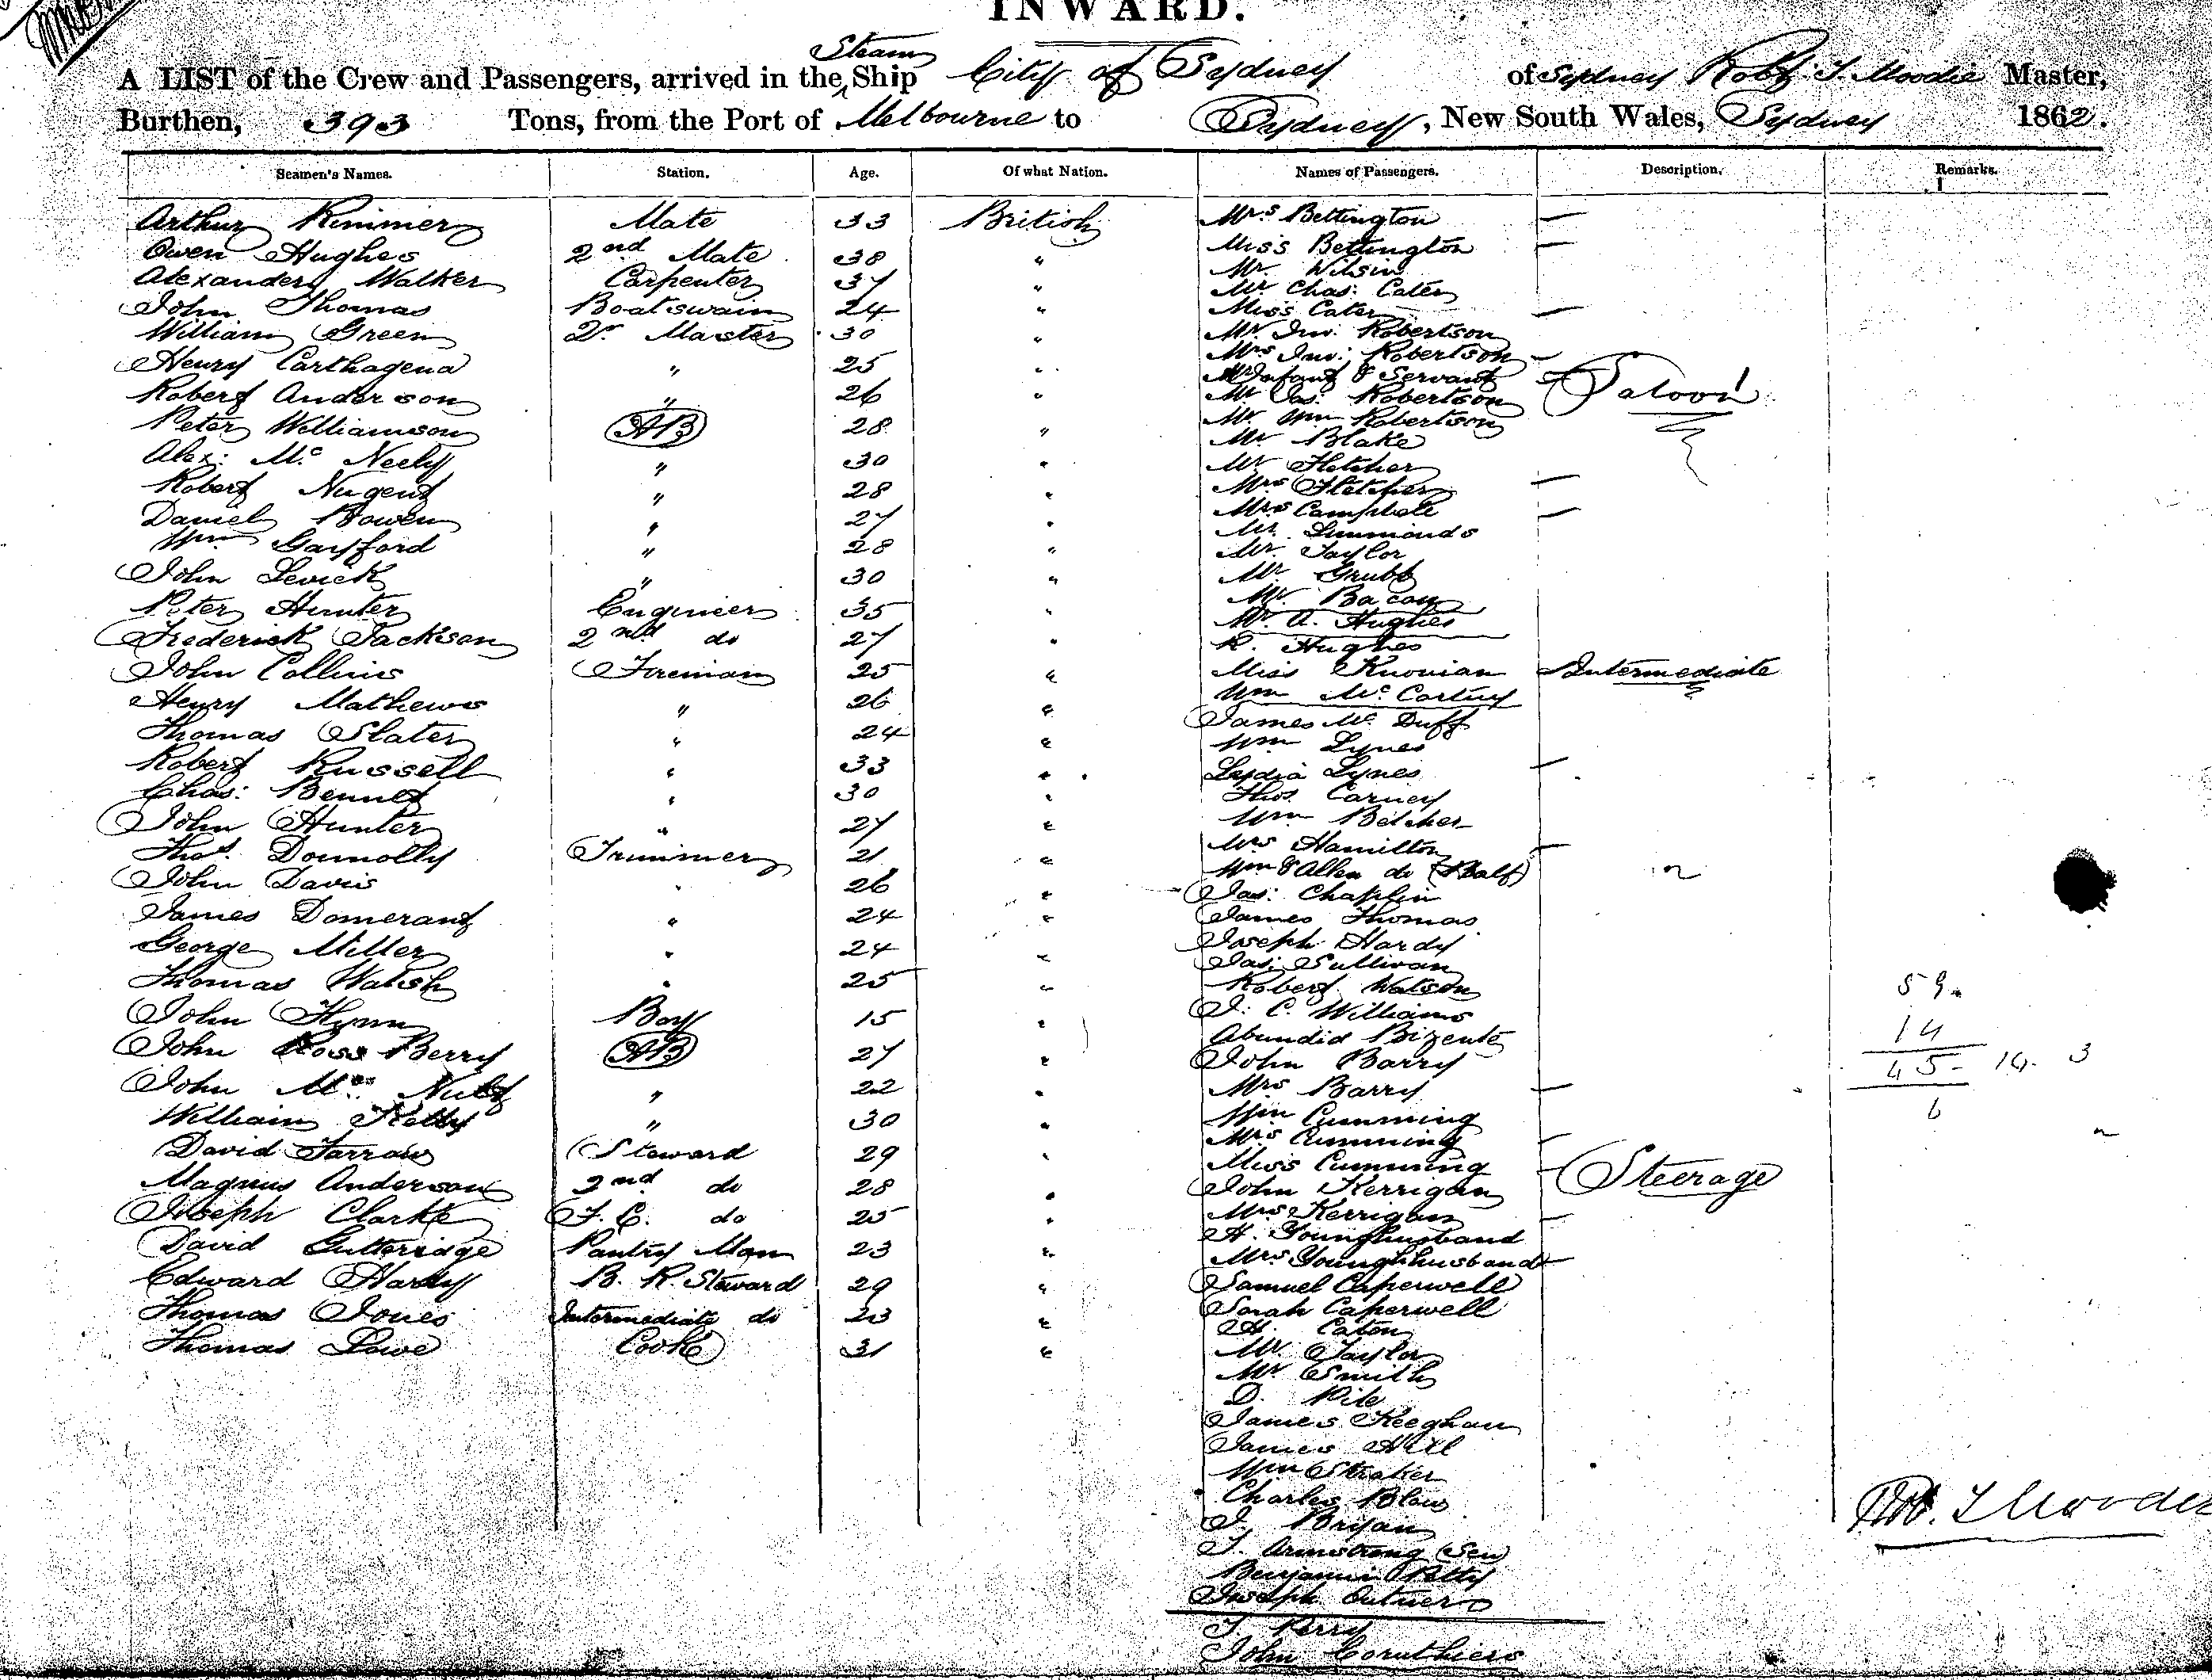 INWARD.
Steam
A LIST of the Crew and Passengers, arrived in the Ship City of Sydney of Sydney Robt. T. Moodie Master,
Burthen, 393 Tons, from the Port of Melbourne to Sydney, New South Wales, Sydney 1862.
Seamen's Names. Station. Age. Of what Nation. Names of Passengers. Description. Remarks.
Arthur Rimmer Mate 33 British Mrs Bettington —
Owen Hughes 2nd Mate 38 " Miss Bettington —
Alexander Walker Carpenter 37 " Mr. Wilson
Mr Chas: Cater
John Thomas Boatswain 24 " Miss Cater —
William Green Qr. Master 30 " Mr Jno. Robertson
Mrs Jno: Robertson —
Henry Carthagena " 25 " Infant & Servant — Saloon
Robert Anderson " 26 " Mr Jas: Robertson
Mr. Wm Robertson
Peter Williamson AB 28 " Mr Blake
Alex: Mc Neely " 30 " Mr Fletcher
Robert Nugent " 28 " Mrs Fletcher —
Mrs Campbell —
Daniel Bowen " 27 " Mr. Simmonds
Wm Gayford " 28 " Mr. Taylor
John Levick " 30 " Mr Grubb
Mr. Bacon
Peter Hunter Engineer 35 " Mr. A. Hughes
Frederick Jackson 2nd do 27 " R. Hughes
John Collins Fireman 25 " Miss Intermediate
Henry Mathews " 26 " Wm Mc Cartney
James Mc Duff
Thomas Slater " 24 " Wm Lynes
Robert Russell " 33 " Lydia Lynes —
Chas: Bennet " 30 " Thos. Carney
John Hunter " 27 " Wm Belcher
Thos. Donnolly Trimmer 21 " Mrs Hamilton —
Wm & Allen do (Half)
John Davis " 26 " Jas: Chaplin
James Domerant " 24 " James Thomas
George Miller " 24 " Joseph Hardy
Jas: Sullivan
Thomas Walsh " 25 " Robert Watson 59
John Flynn Boy 15 " J. C. Williams
Abundid Bizente 14
John Ross Berry AB 27 " John Barry 45 - 14. 3
John Mc. Nult " 22 " Mrs Barry —
William Kelly " 30 " Wm Cumming 6
Mrs Cumming —
David Farrow Steward 29 " Miss Cumming — Steerage
Magnus Anderson 2nd do 28 " John Kerrigan
Joseph Clarke F. C. do 25 " Mrs Kerrigan —
H. Younghusband
David Gutteridge Pantry Man 23 " Mrs Younghusband —
Edward Hardy B. R. Steward 29 " Samuel Caperwell
Thomas Jones Intermediate do 23 " Sarah Caperwell
H. Caton
Thomas Lowe Cook 31 " Mr. Taylor
Mr Smith
D. Pile
James Keeghan
James Hill
Wm Straker
Charles Blow
J. Bryan
T. Armstrong (Sen)
Benjamin Petty
Joseph
T. Perry
John Coruthiers
Rob. T Moodie